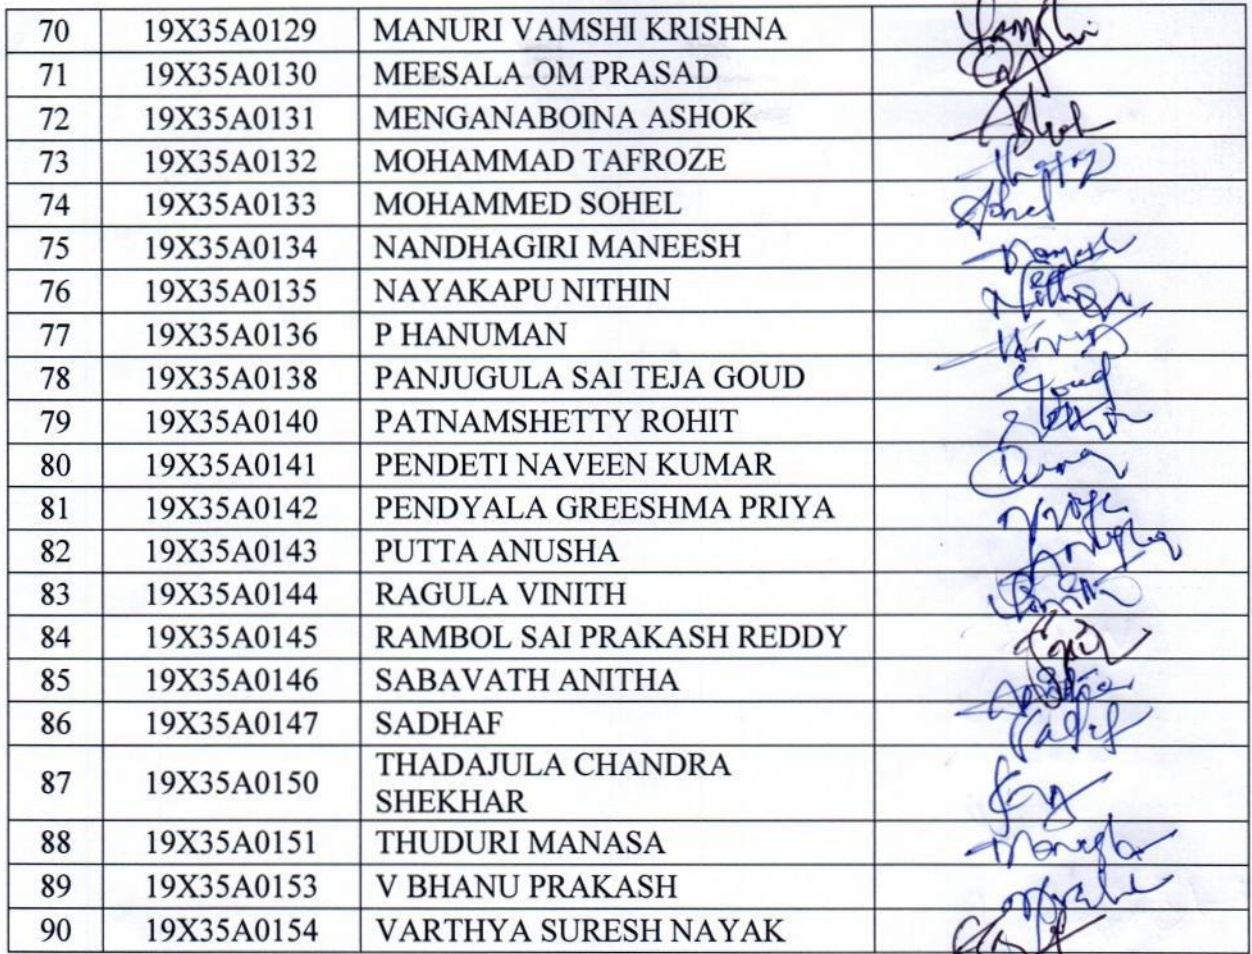 70 19X35A0129 MANURI VAMSHI KRISHNA Vamshi
71 19X35A0130 MEESALA OM PRASAD
72 19X35A0131 MENGANABOINA ASHOK Ashok
73 19X35A0132 MOHAMMAD TAFROZE
74 19X35A0133 MOHAMMED SOHEL Sohel
75 19X35A0134 NANDHAGIRI MANEESH
76 19X35A0135 NAYAKAPU NITHIN Nithin
77 19X35A0136 P HANUMAN
78 19X35A0138 PANJUGULA SAI TEJA GOUD Goud
79 19X35A0140 PATNAMSHETTY ROHIT
80 19X35A0141 PENDETI NAVEEN KUMAR
81 19X35A0142 PENDYALA GREESHMA PRIYA
82 19X35A0143 PUTTA ANUSHA
83 19X35A0144 RAGULA VINITH
84 19X35A0145 RAMBOL SAI PRAKASH REDDY
85 19X35A0146 SABAVATH ANITHA
86 19X35A0147 SADHAF
87 19X35A0150 THADAJULA CHANDRA
SHEKHAR
88 19X35A0151 THUDURI MANASA
89 19X35A0153 V BHANU PRAKASH
90 19X35A0154 VARTHYA SURESH NAYAK